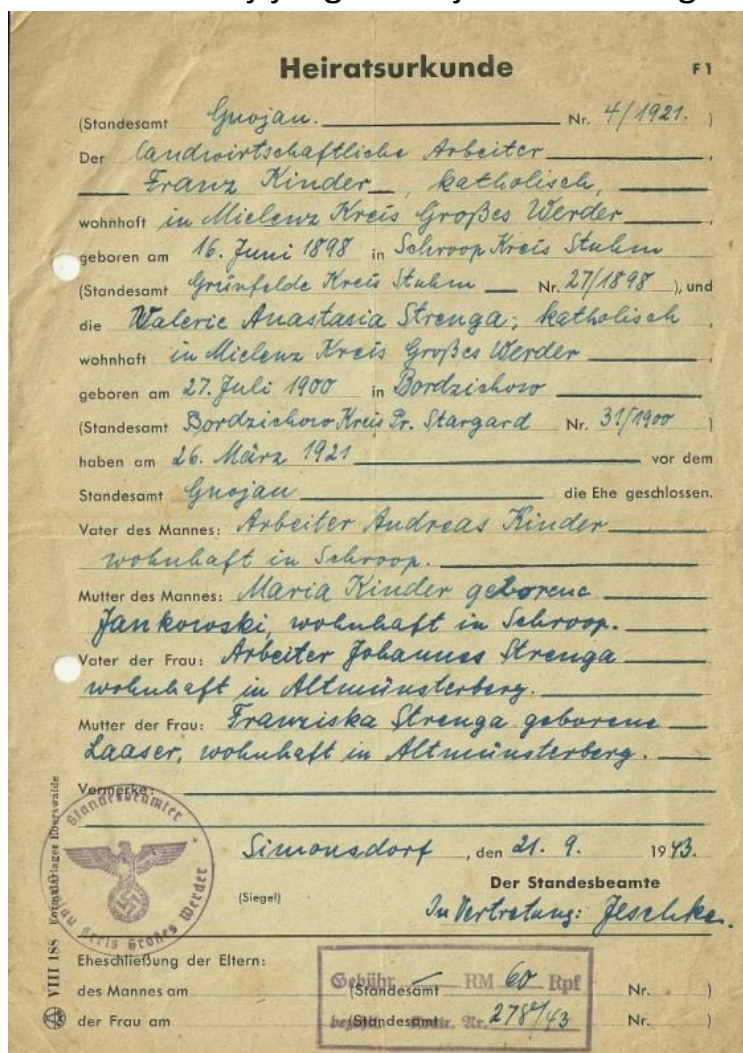 Heiratsurkunde F1
(Standesamt Gnojau. Nr. 4/1921. )
Der landwirtschaftliche Arbeiter ,
Franz Kinder , katholisch,
wohnhaft in Mielenz Kreis Großes Werder ,
geboren am 16. Juni 1898 in Schroop Kreis Stuhm
(Standesamt Grünfelde Kreis Stuhm Nr. 27/1898 ), und
die Valerie Anastasia Strenga; katholisch ,
wohnhaft in Mielenz Kreis Großes Werder ,
geboren am 27. Juli 1900 in Bordzichow
(Standesamt Bordzichow Kreis Pr. Stargard Nr. 31/1900 )
haben am 26. März 1921 vor dem
Standesamt Gnojau die Ehe geschlossen.
Vater des Mannes: Arbeiter Andreas Kinder
wohnhaft in Schroop.
Mutter des Mannes: Maria Kinder geborene
Jankowski, wohnhaft in Schroop.
Vater der Frau: Arbeiter Johannes Strenga
wohnhaft in Altmünsterberg.
Mutter der Frau: Franziska Strenga geborene
Laaser, wohnhaft in Altmünsterberg.
Vermerke:
Standesbeamter
Kreis Großes Werder
Simonsdorf , den 21. 9. 1943.
Der Standesbeamte
(Siegel)
In Vertretung: Jeschke.
Eheschließung der Eltern:
Gebühr RM 60 Rpf
des Mannes am (Standesamt Nr. )
Nr. 278/43
der Frau am (Standesamt Nr. )
VIII 188 Formularlager Eberswalde